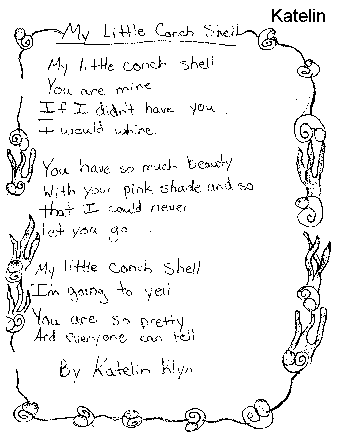 Katelin
My Little Conch Shell
My little conch shell
You are mine
If I didn't have you
I would whine.
You have so much beauty
With your pink shade and so
that I could never
let you go.
My little Conch Shell
I'm going to yell
You are so pretty
And Everyone can tell
By Katelin Klyn